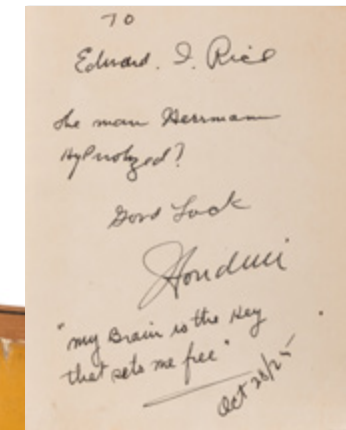 TO
Edward. I. Rice
the man Herrmann
Hypnotyzed?
Good Luck
Houdini
"my Brain is the Key
that sets me free"
Oct 28/25